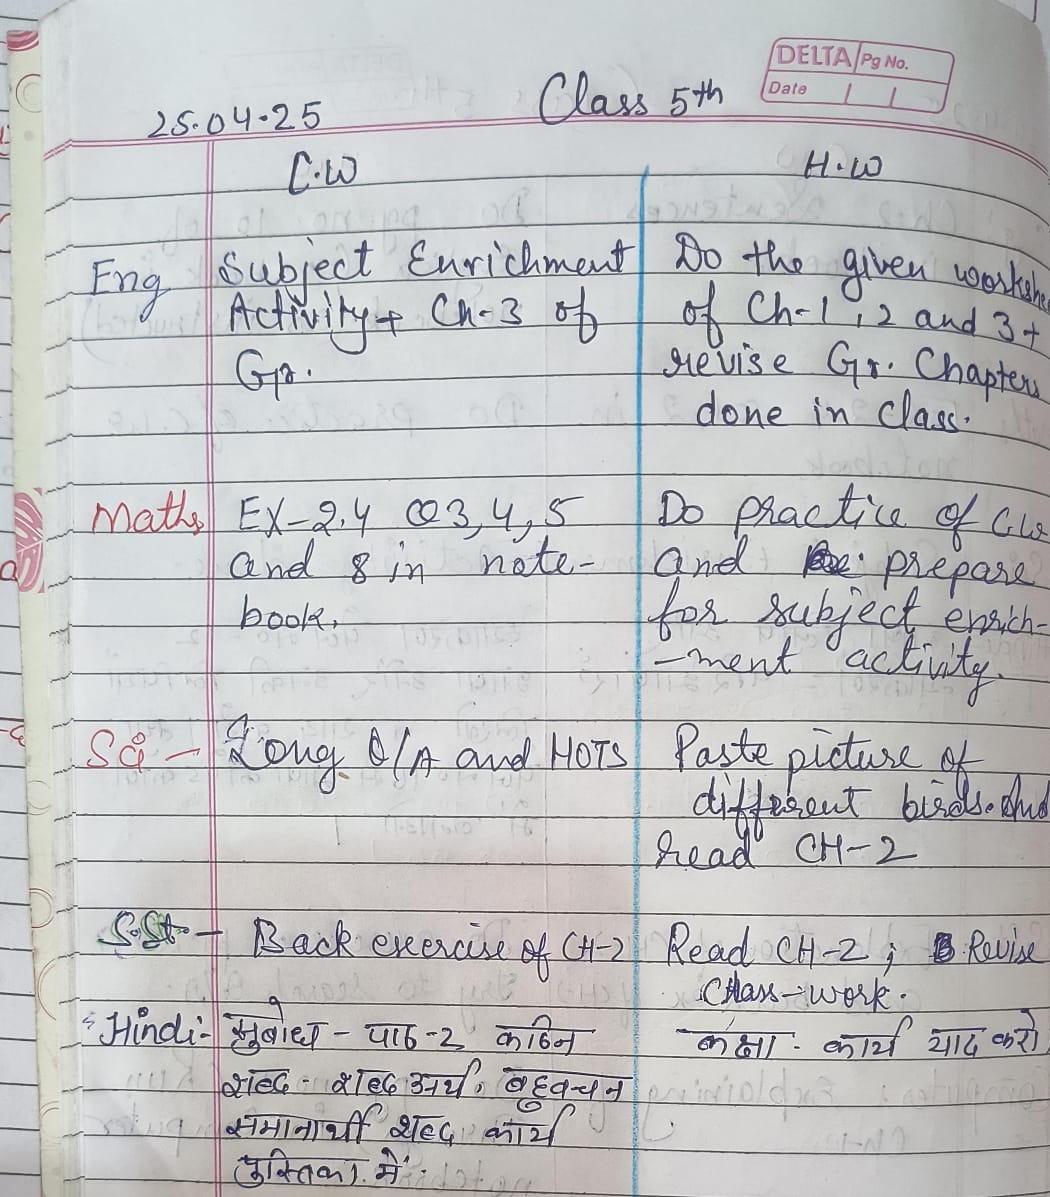 DELTA Pg No.
Date
25.04.25 Class 5th
C.W H.W
Eng Subject Enrichment Do the given workshe
Activity + Ch-3 of of Ch-1, 2 and 3 +
Gr. revise Gr. Chapters
done in class.
Maths Ex-2.4 Q3, 4, 5 Do practice of C.W
and 8 in note- and prepare
book. for subject enrich-
-ment activity.
Sci - Long Q/A and HOTS Paste picture of
different birds. And
Read CH-2
S.St - Back exercise of CH-2 Read CH-2 ; Revise
Class-work.
Hindi:- सुबोध - पाठ-2 कठिन कक्षा - कार्य याद करो
शब्द - शब्द अर्थ, बहुवचन
समानार्थी शब्द कार्य
पुस्तिका में.